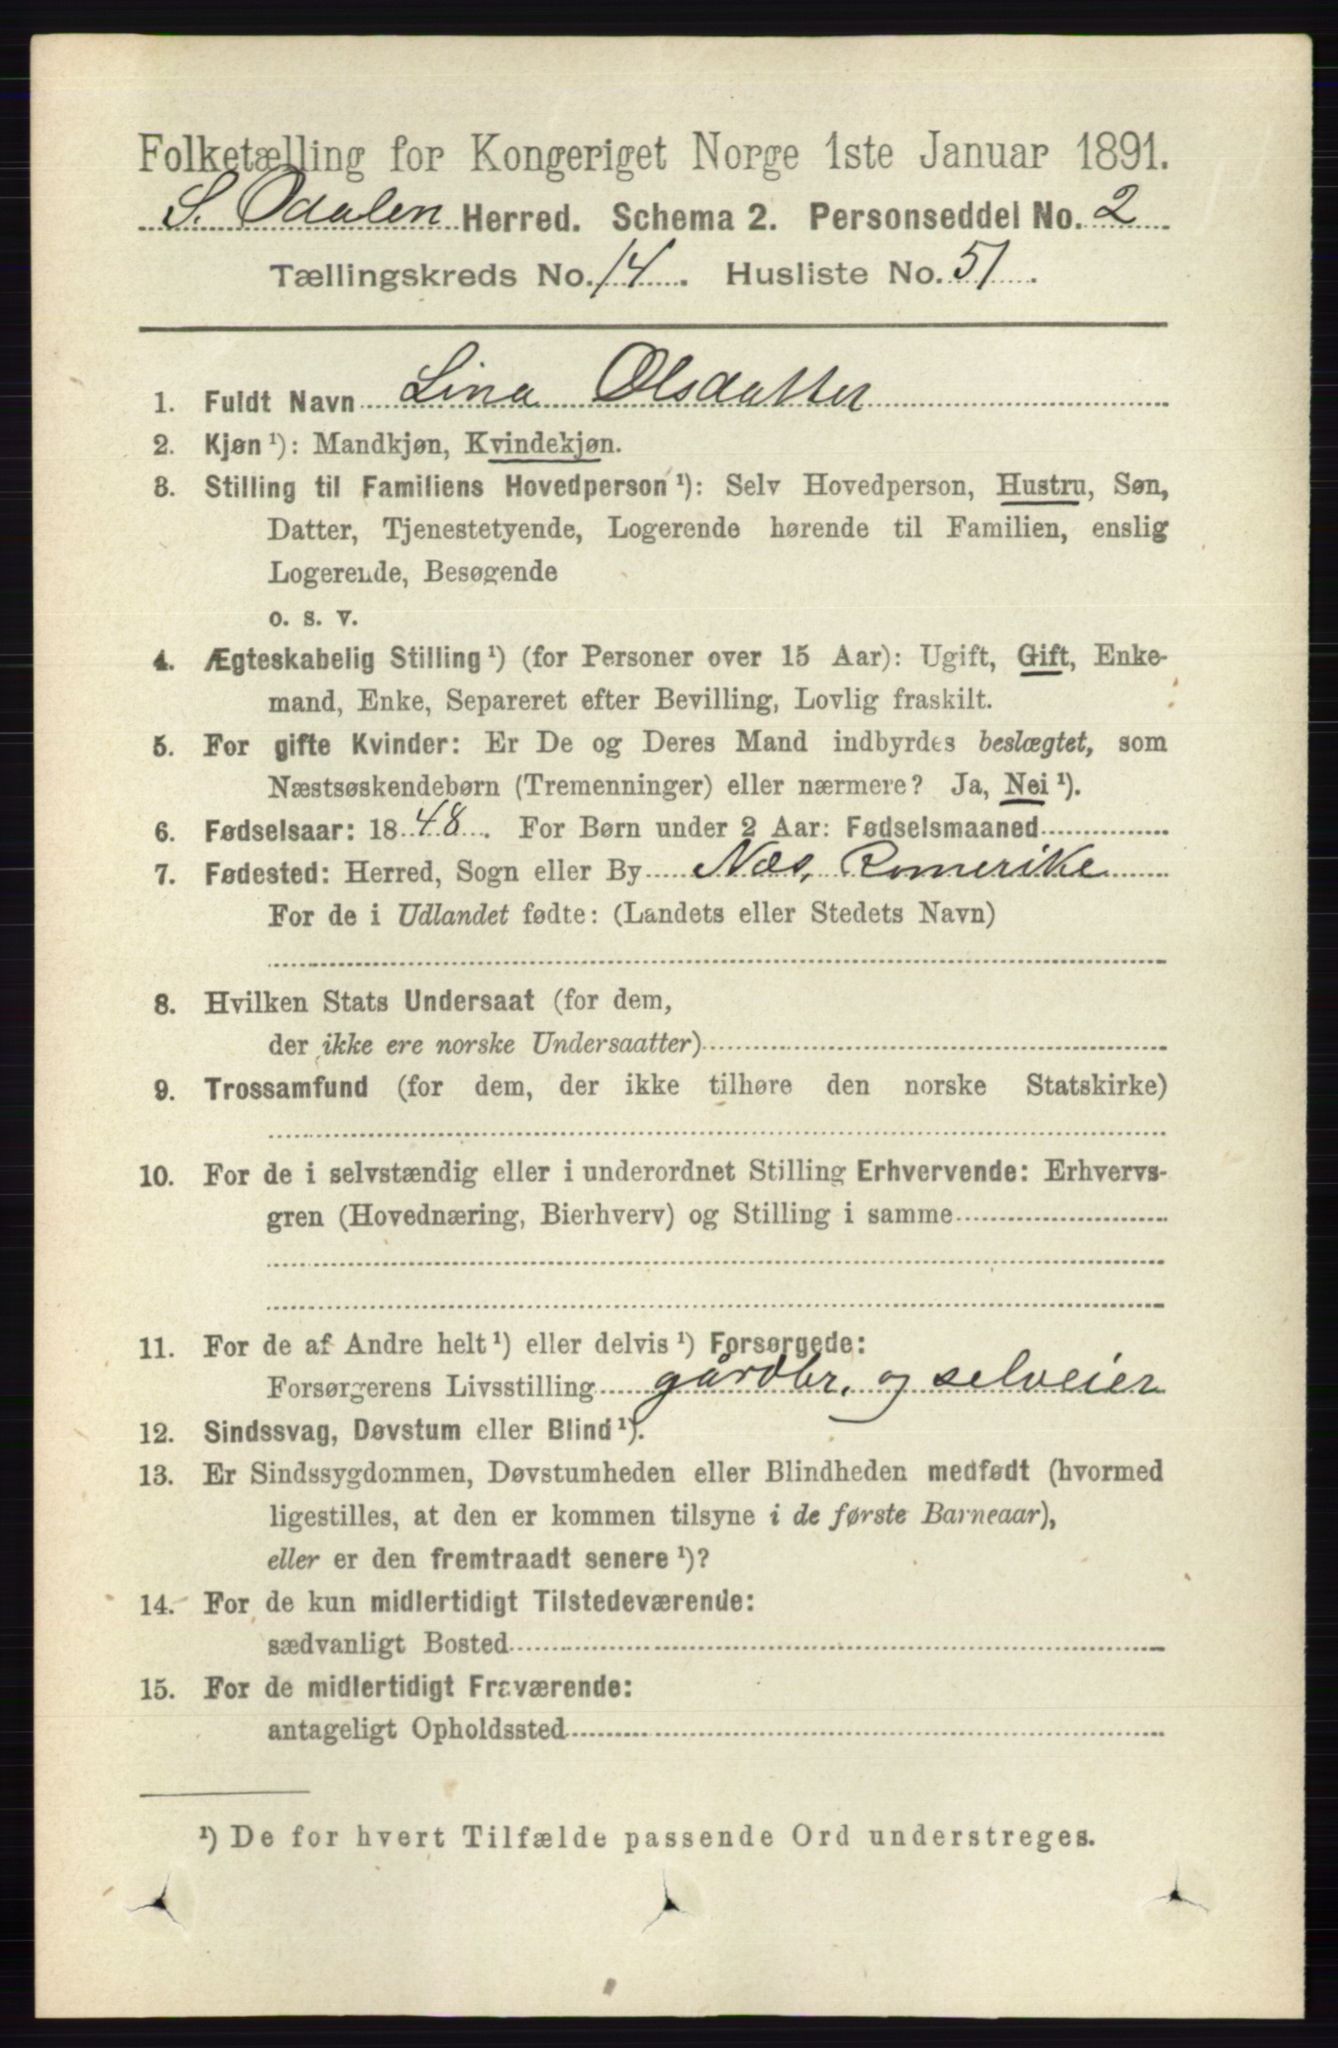 Folketælling for Kongeriget Norge 1ste Januar 1891.
S. Odalen Herred. Schema 2. Personseddel No. 2
Tællingskreds No. 14. Husliste No. 51.
1. Fuldt Navn Lina Olsdatter
2. Kjøn ¹): Mandkjøn, Kvindekjøn.
3. Stilling til Familiens Hovedperson ¹): Selv Hovedperson, Hustru, Søn,
Datter, Tjenestetyende, Logerende hørende til Familien, enslig
Logerende, Besøgende
o. s. v.
4. Ægteskabelig Stilling ¹) (for Personer over 15 Aar): Ugift, Gift, Enke-
mand, Enke, Separeret efter Bevilling, Lovlig fraskilt.
5. For gifte Kvinder: Er De og Deres Mand indbyrdes beslægtet, som
Næstsøskendebørn (Tremenninger) eller nærmere? Ja, Nei ¹).
6. Fødselsaar: 1848. For Børn under 2 Aar: Fødselsmaaned
7. Fødested: Herred, Sogn eller By Næs, Romerike
For de i Udlandet fødte: (Landets eller Stedets Navn)
8. Hvilken Stats Undersaat (for dem,
der ikke ere norske Undersaatter)
9. Trossamfund (for dem, der ikke tilhøre den norske Statskirke)
10. For de i selvstændig eller i underordnet Stilling Erhvervende: Erhvervs-
gren (Hovednæring, Bierhverv) og Stilling i samme
11. For de af Andre helt ¹) eller delvis ¹) Forsørgede:
Forsørgerens Livsstilling gårdbr. og selveier
12. Sindssvag, Døvstum eller Blind ¹).
13. Er Sindssygdommen, Døvstumheden eller Blindheden medfødt (hvormed
ligestilles, at den er kommen tilsyne i de første Barneaar),
eller er den fremtraadt senere ¹)?
14. For de kun midlertidigt Tilstedeværende:
sædvanligt Bosted
15. For de midlertidigt Fraværende:
antageligt Opholdssted
¹) De for hvert Tilfælde passende Ord understreges.